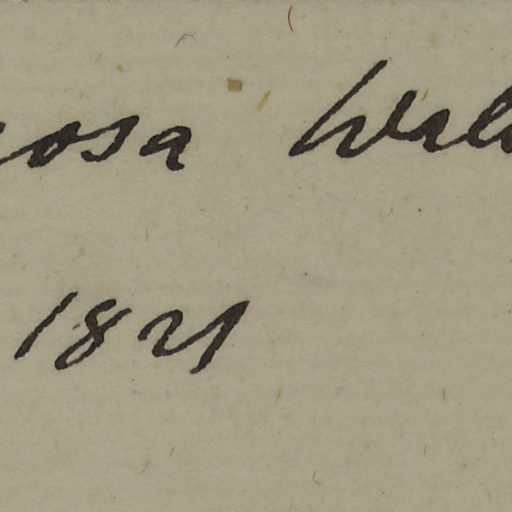 osa Wal
1821